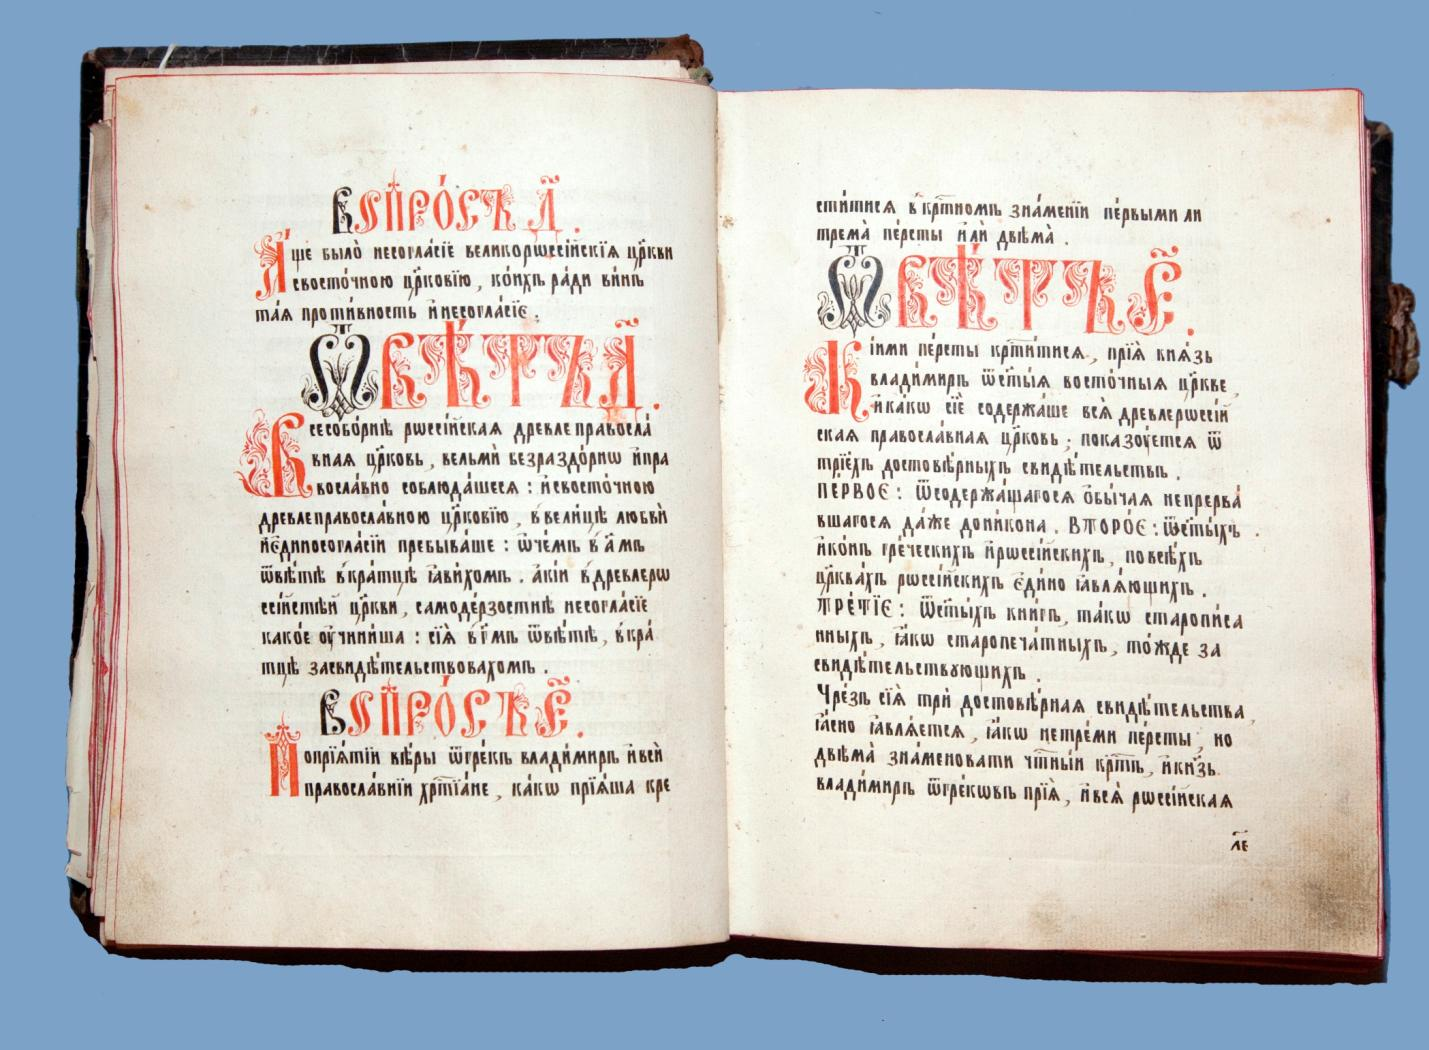 Вопро́съ д҃.
А҆́ще было̀ несогла́сїе великорѡссі́йскїѧ цр҃кви
с восто́чною цр҃ковїю, ко́ихъ ра́ди ви́нъ
та́ѧ проти́вность и҆ несогла́сїе.
Ѿвѣ́тъ д҃.
Всесобо́рнѣ рѡссі́йскаѧ древлеправосла́
внаѧ цр҃ковь, вельмѝ безраздо́рнѡ и҆ пра
восла́вно соблюда́шесѧ: и҆ с восто́чною
древлеправосла́вною цр҃ковїю, в̾ вели́цѣ любвѝ
и҆ є҆диносогла́сїи пребыва́ше: ѡ҆ че́мъ в̾ а҃ мъ
ѿвѣ́тѣ вкра́тцѣ ꙗ҆ви́хомъ. а҆ кі́и в̾ древлерѡ
ссі́йстѣй цр҃кви, самоде́рзостнѣ несогла́сїе
како́е ѹ҆чини́ша: сїѧ̑ в̾ г҃ мъ ѿвѣ́тѣ, вкра́
тцѣ засвидѣ́тельствовахомъ.
Вопро́съ є҃.
По прїѧ́тїи вѣ́ры ѿ гре́къ влади́миръ и҆ всѝ
правосла́внїи хрⷭ҇тїа́не, ка́кѡ прїѧ́ша кре
сти́тисѧ в̾ крⷭ҇тномъ зна́менїи пе́рвыми ли
трема̀ пе́рсты и҆лѝ двѣма̀.
Ѿвѣ́тъ є҃.
Кі́ими пе́рсты крⷭ҇ти́тисѧ, прїѧ̀ кнѧ́зь
влади́миръ ѿ ст҃ы́ѧ восто́чныѧ цр҃кве,
и҆ ка́кѡ сїѐ содержа́ше всѧ̀ древлерѡссі́й
скаѧ правосла́внаѧ цр҃ковь; показꙋ́етсѧ ѿ
трїе́хъ достовѣ́рныхъ свидѣ́тельствъ.
ПЕ́РВОЕ: ѿ содержа́щагосѧ ѻ҆бы́чаѧ непрерва́
вшагосѧ да́же до ни́кона. ВТОРО́Е: ѿ ст҃ы́хъ
и҆ко́нъ гре́ческихъ и҆ рѡссі́йскихъ, по всѣ́хъ
цр҃ква́хъ рѡссі́йскихъ є҆ди́но ꙗ҆влѧ́ющихъ.
ТРЕ́ТЇЕ: ѿ ст҃ы́хъ кни́гъ, та́кѡ старописа́
нныхъ, ꙗ҆́кѡ старопеча́тныхъ, то́жде за
свидѣ́тельствующихъ.
Чре́зъ сїѧ̑ трѝ достовѣ́рнаѧ свидѣ́тельства,
ꙗ҆́сно ꙗ҆влѧ́етсѧ, ꙗ҆́кѡ не тре́ми пе́рсты, но
двѣма̀ зна́меновати чⷭ҇тны́й крⷭ҇тъ, и҆ кн҃зь
влади́миръ ѿ гре́кѡвъ прїѧ̀, и҆ всѧ̀ рѡссі́йскаѧ
л҃е